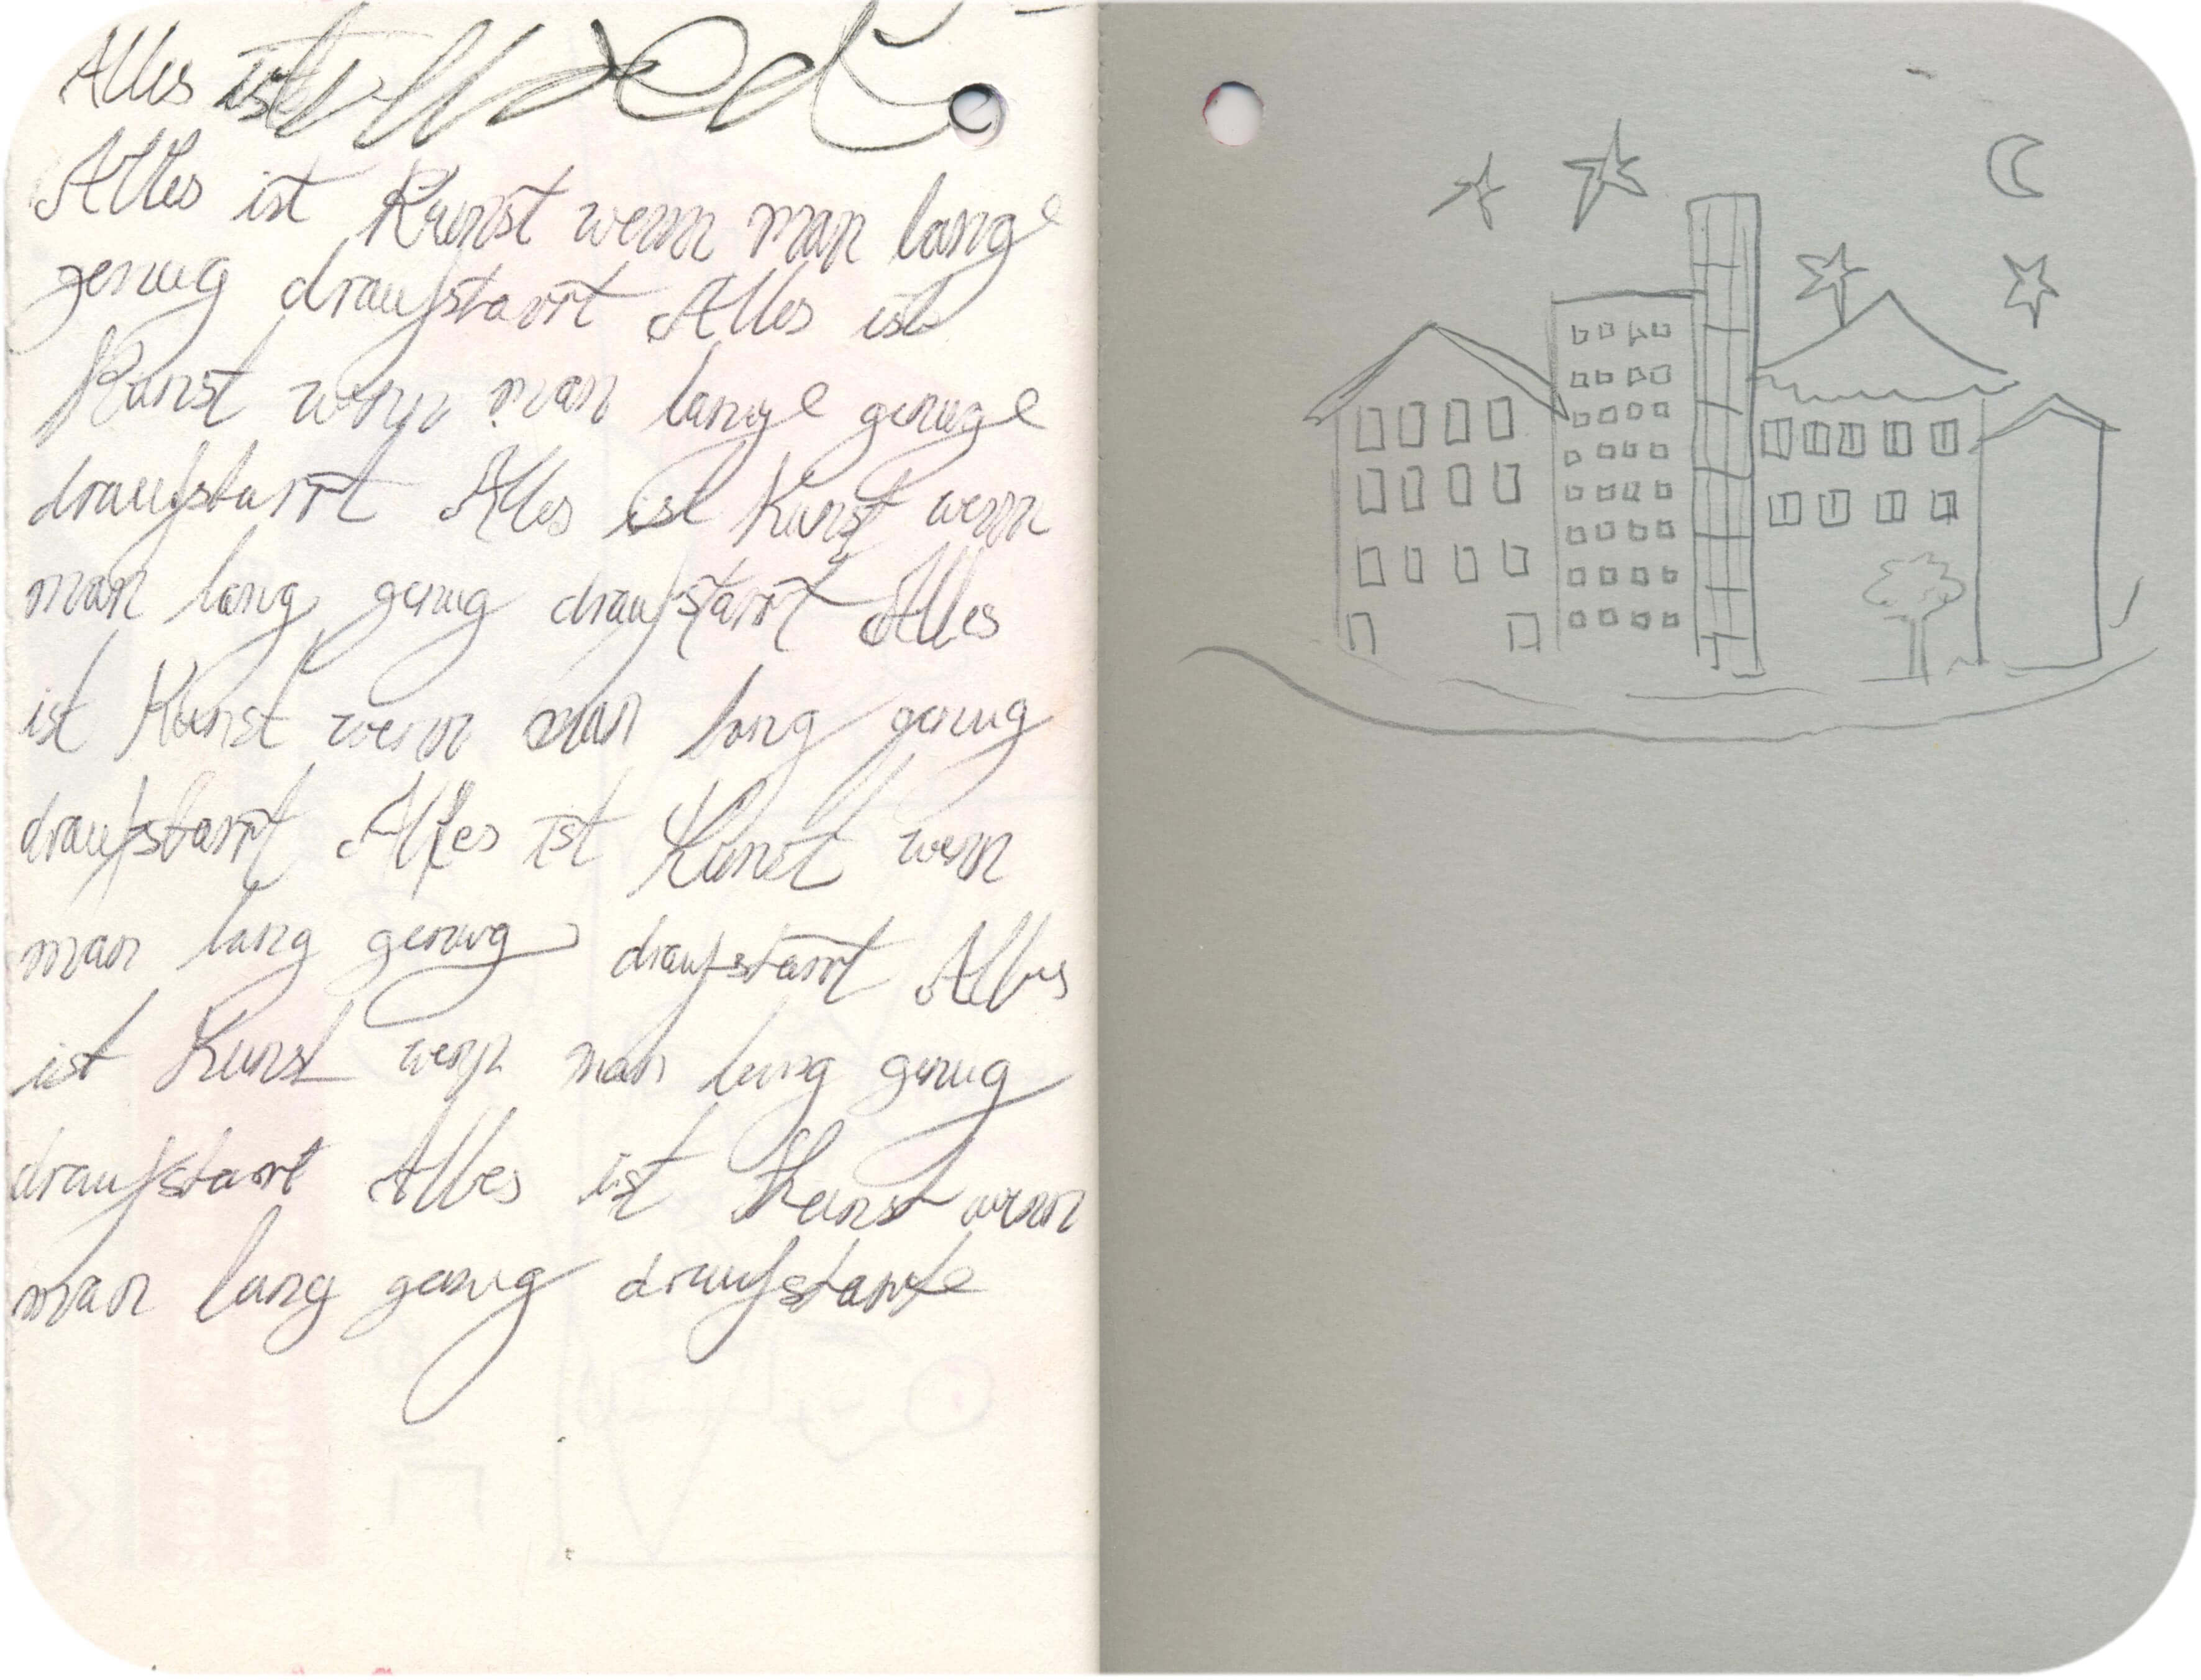 Alles ist
Alles ist Kunst wenn man lange
genug draufstarrt Alles ist
Kunst wenn man lange genuge
draufstarrt Alles ist Kunst wenn
man lang genug draufstarrt Alles
ist Kunst wenn man lang genug
draufstarrt Alles ist Kunst wenn
man lang genug draufstarrt Alles
ist Kunst wenn man lang genug
draufstarrt Alles ist Kunst wenn
man lang genug draufstarrte